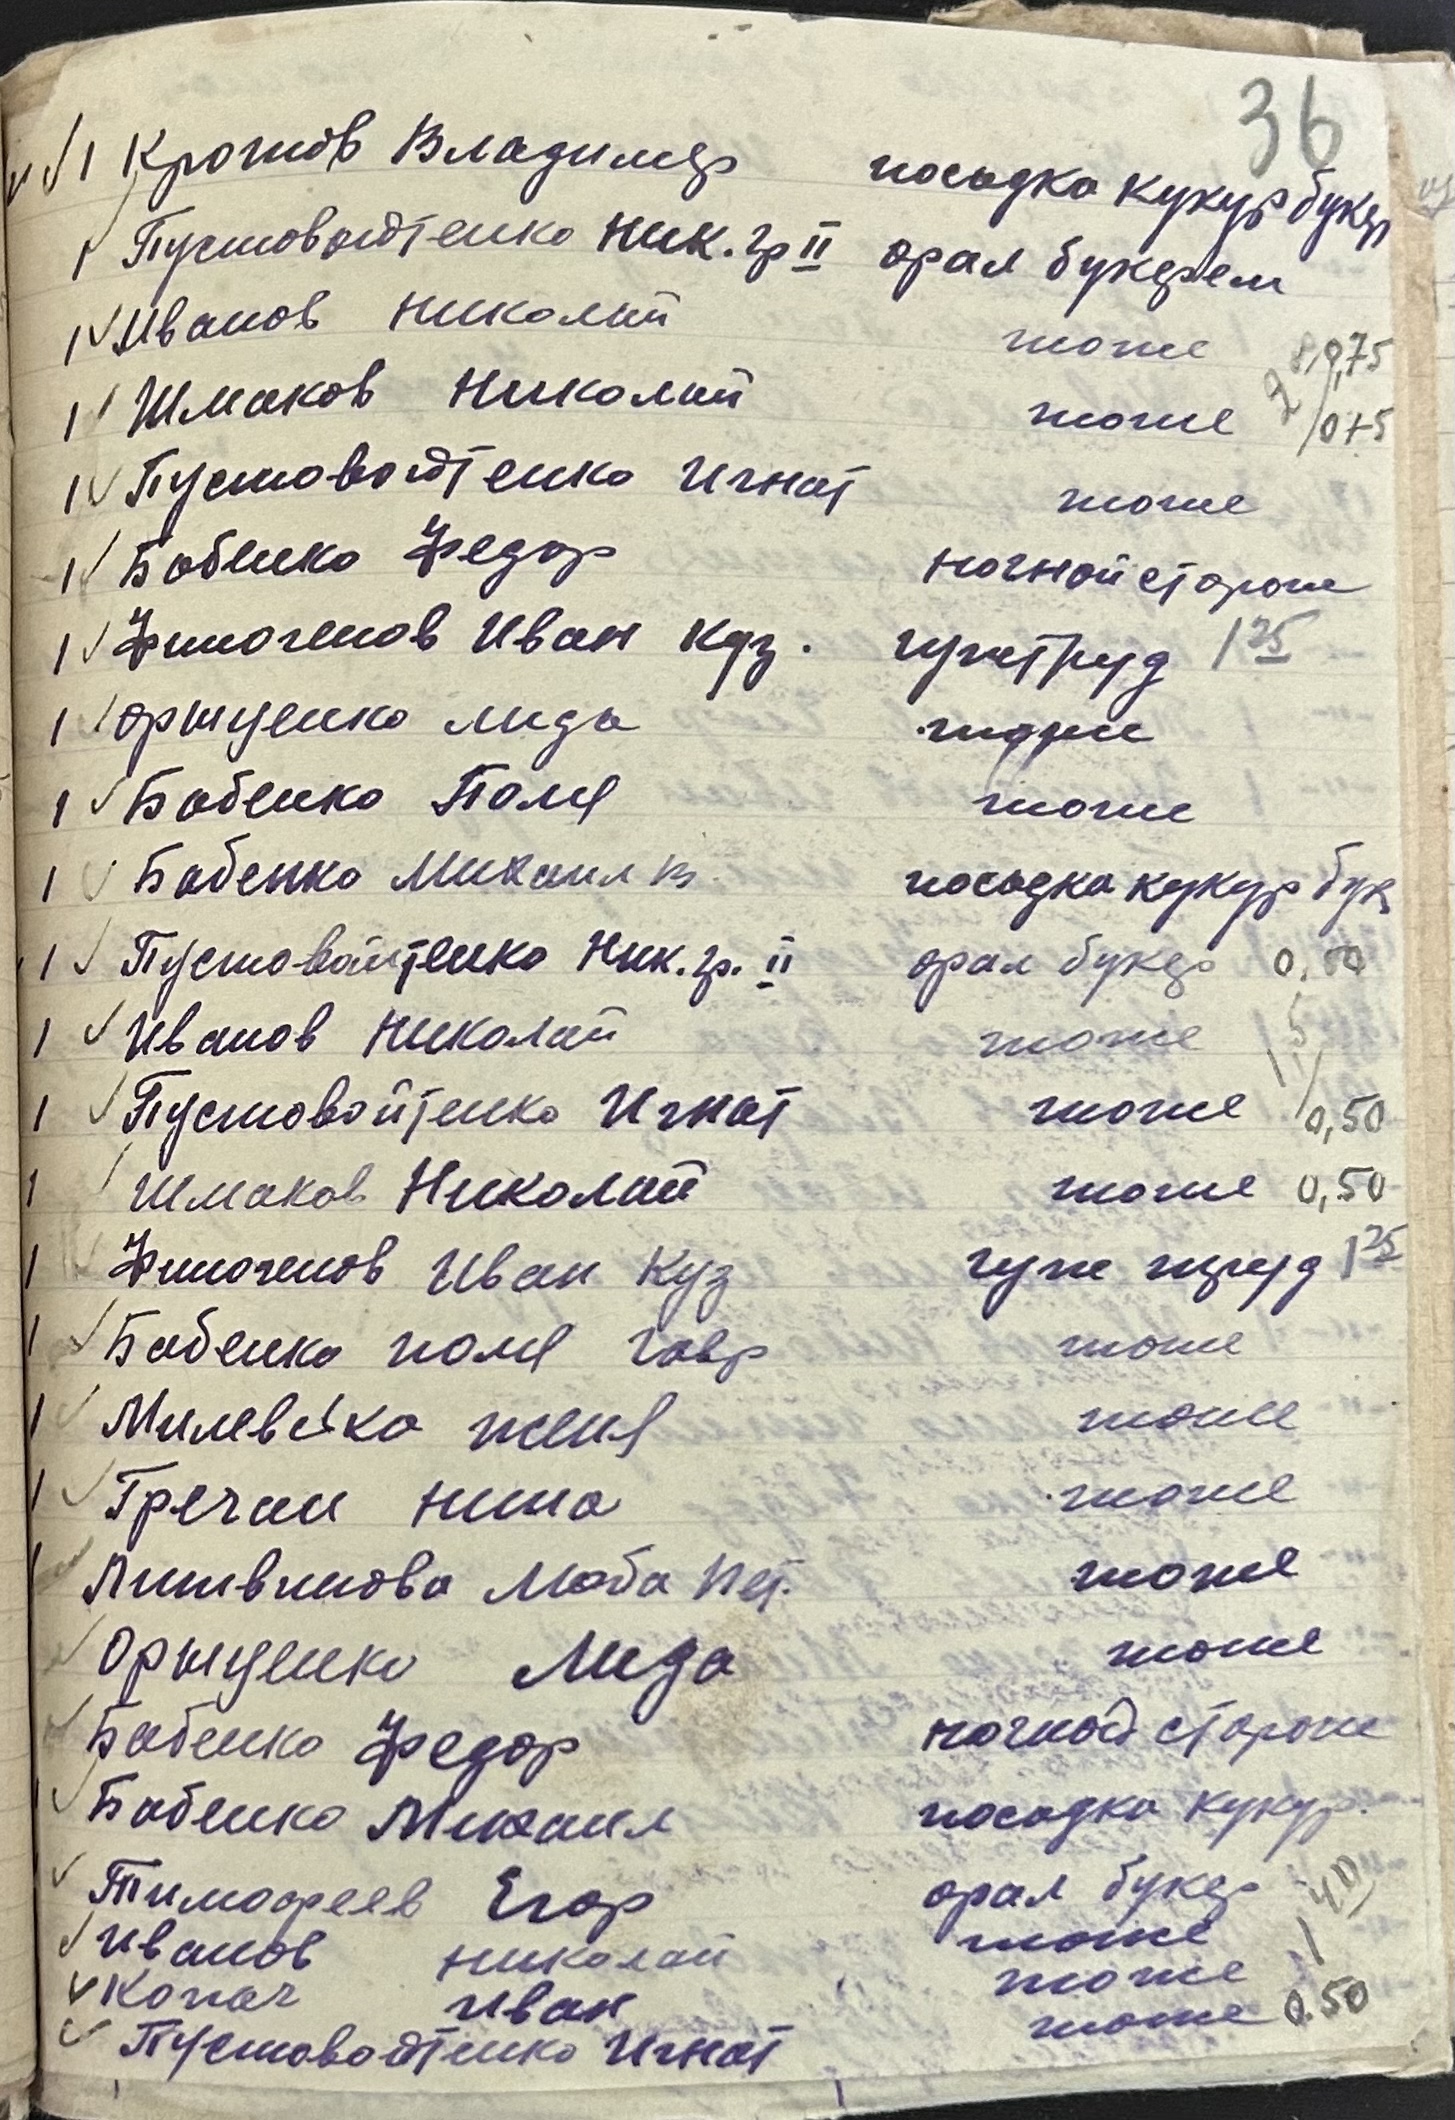 36
1 Кротов Владимер посадка кукур букер
1 Пустовойтенко Ник. гр II орал букерем
1 Иванов Николай тоже 0,75
1 Шмаков Николай тоже 0,75
1 Пустовойтенко Игнат тоже
1 Бабенко Федор ночной стороже
1 Финогенов Иван Куз. гужтруд 1 25
1 Орищенко лида тоже
1 Бабенко Поля тоже
1 Бабенко Михаил посадка кукур бук
1 Пустовойтенко Ник. гр. II орал букер 0,50
1 Иванов Николай тоже
1 Пустовойтенко Игнат тоже 0,50
1 Шмаков Николай тоже 0,50
1 Финогенов Иван Куз гуж труд 1 25
1 Бабенко поля Гавр тоже
1 Милевска женя тоже
1 Гречан нина тоже
1 Литвинова Люба Пет. тоже
Орищенко Лида тоже
Бабенко Федор ночной стороже
Бабенко Михаил посадка кукур.
Тимофеев Егор орал букер
Иванов николай тоже
Копач иван тоже
Пустовойтенко Игнат тоже 0.50